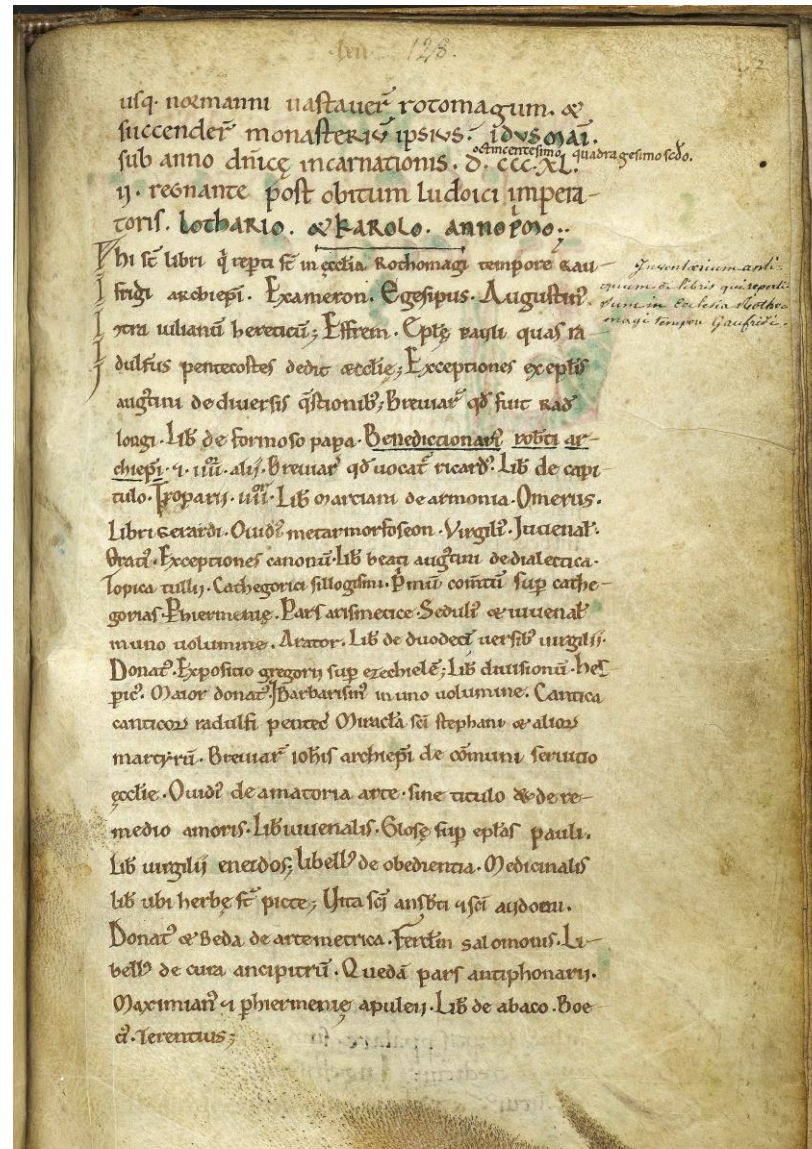 128.
usq. normanni uastauer̄ rotomagum. &
succender̄ monasteriū ipsius. idus maii.
octincentesimo quadragesimo scd̄o.
sub anno dn̄icę incarnationis. d. ccc. xl.
ii. regnante post obitum ludoici impera-
toris. lothario. & karolo. anno p̄mo..
hi st̄ libri q̄ rep̄ti st̄ in ęcclia Rothomagi tempore Gau
fridi archiep̄i. Exameron. Egesipus. Augustin᷒
ɔtra iulianū hereticū; Effrem. Ep̄lę Pauli quas ra
dulfus pentecostes dedit ęcclię; Exceptiones ex ep̄lis
aug᷒tini de diuersis q̄stionib᷒; Breuiar̄ qd̄ fuit Rad̄
longi. Lib̄ de formoso papa. Benediccionari᷒ rob̄ti ar-
chiep̄i. ⁊. iiii. alij. Breuiar̄ qd̄ uocat̄ ricard᷒. Lib̄ de capi
tulo. Troparii. iiii. Lib̄ Marciani de armonia. Omerus.
Libri Gerardi. Ouidi᷒ metarmorfoseon. Virgili᷒. Juuenal᷒.
Orati᷒. Exceptiones canonū. Lib̄ beati aug᷒tini de dialettica.
Topica tullij. Cathegorici sillogismi. P̄mū com̄tū sup̄ cathe-
gorias. Phiermenię. Pars arismetice. Seduli᷒ & iuuenal᷒
in uno uolumine. Arator. Lib̄ de duodecī uersib᷒ uirgilij.
Donat᷒. Expositio gregorij sup̄ ezechielē; Lib̄ diuisionū. hes
pic᷒. Maior donat᷒. Barbarism᷒ in uno uolumine. Cantica
canticoꝝ radulfi pentec̄ Miracl̄a sc̄i stephani & alioꝝ
martyrū. Breuiar̄ ioh̄is archiep̄i de cōmuni seruitio
ęcclie. Ouidi᷒ de amatoria arte. sine titulo & de re-
medio amoris. Lib̄ iuuenalis. Glosę sup̄ ep̄las pauli.
Lib̄ uirgilij eneidos; libell᷒ de obedientia. Medicinalis
lib̄ ubi herbę st̄ picte; Uita sc̄i ansb̄ti ⁊ sc̄i audoeni.
Donat᷒ & Beda de arte metrica. salomonis. Li-
bell᷒ de cura ancipitrū. Quedā pars antiphonarij.
Maximian᷒ ⁊ phiermenię apuleij. Lib̄ de abaco. Boe
ci᷒. Terentius;
Inventarium anti-
quum de libris qui reperti
sunt in Ecclesia Rotho-
magi tempore Gaufridi.